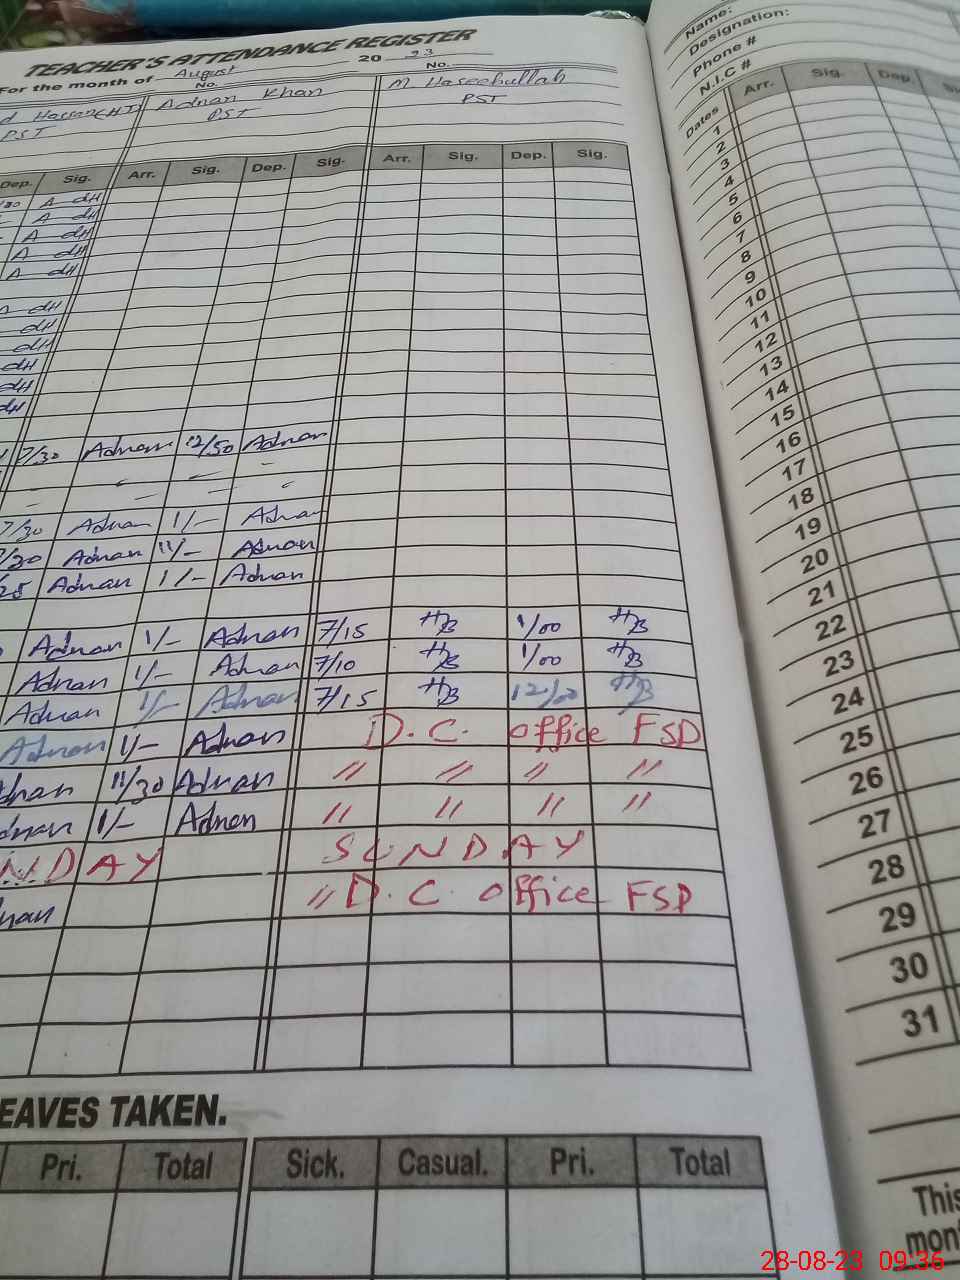 TEACHER'S ATTENDANCE REGISTER
For the month of August 20 23
No. No.
Adnan Khan M. Haseebullah
PST PST PST
Dep. Sig. Arr. Sig. Dep. Sig. Arr. Sig. Dep. Sig.
A dH
A dH
A dH
A dH
A dH
A dH
dH
dH
dH
dH
dH
7/30 Adnan 12/50 Adnan
7/30 Adnan 1/- Adnan
Adnan 11/- Adnan
Adnan 1/- Adnan
Adnan 1/- Adnan 7/15 HB 1/00 HB
Adnan 1/- Adnan 7/10 HB 1/00 HB
Adnan 1/- Adnan 7/15 HB 12/00 HB
Adnan 1/- Adnan D.C. office FSD
11/30 Adnan " " " "
1/- Adnan " " " "
NDAY SUNDAY
" D.C. office FSD
EAVES TAKEN.
Pri. Total Sick. Casual. Pri. Total
Name:
Designation:
Phone #
N.I.C #
Dates Arr. Sig. Dep.
1
2
3
4
5
6
7
8
9
10
11
12
13
14
15
16
17
18
19
20
21
22
23
24
25
26
27
28
29
30
31
This
mon
28-08-23 09:36